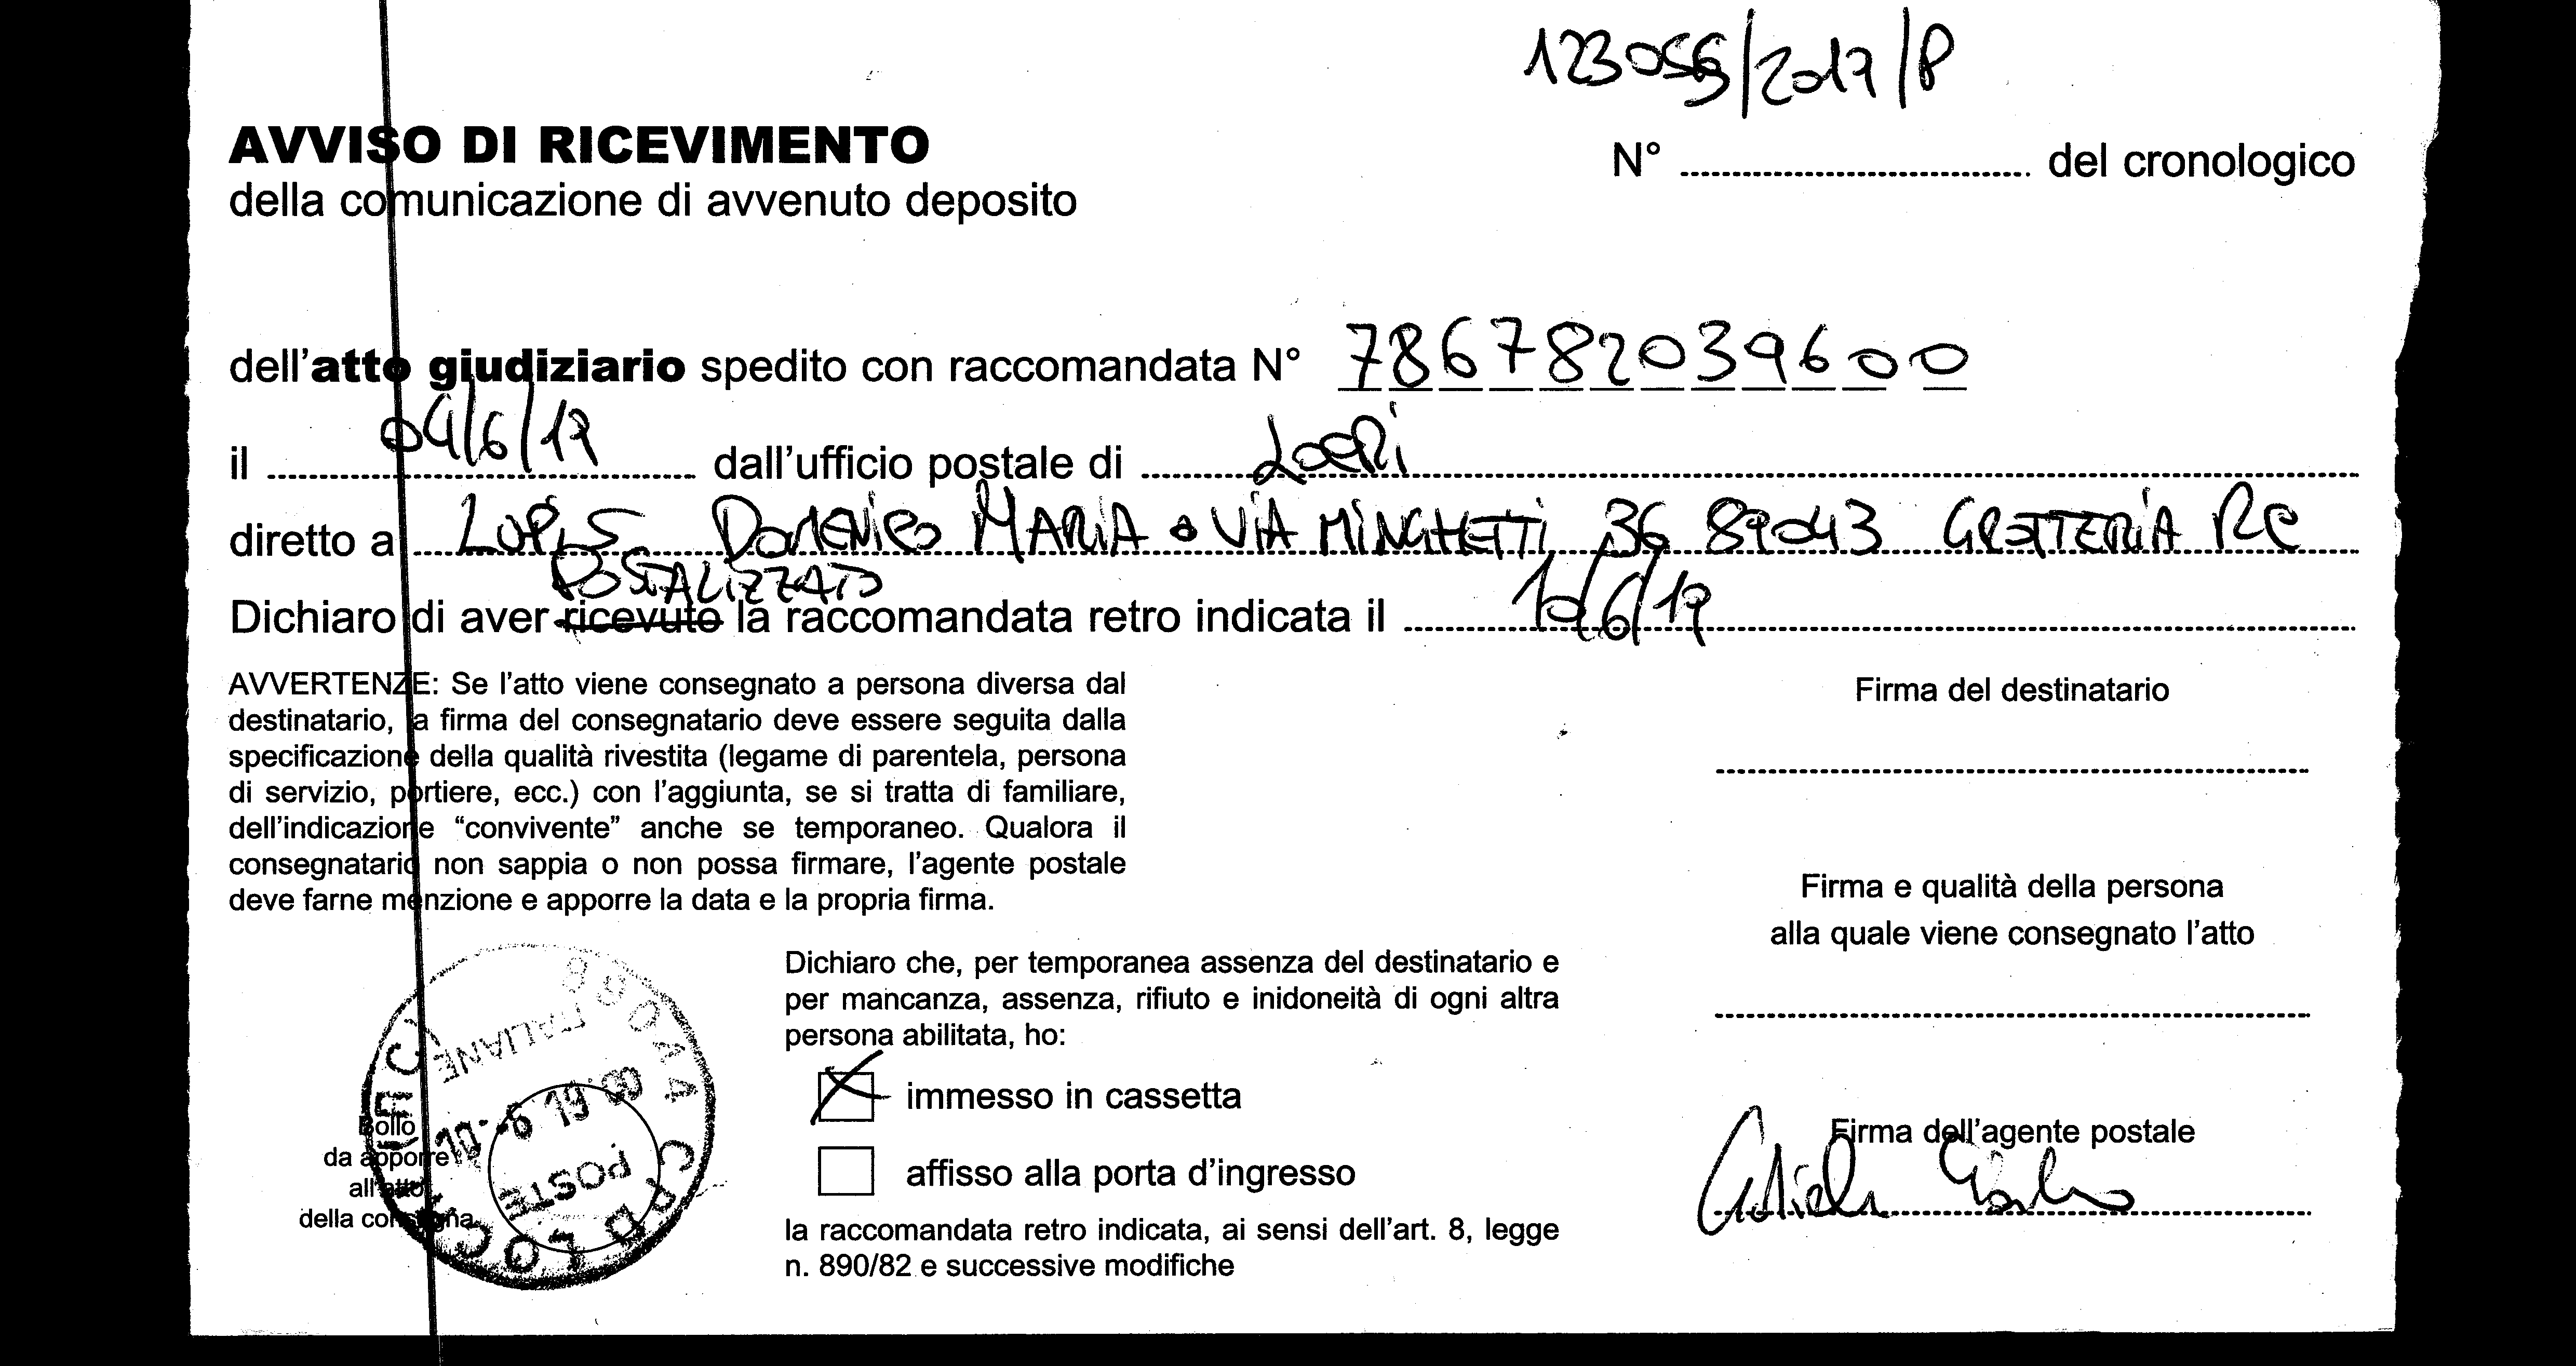 123055/2017/P
AVVISO DI RICEVIMENTO
N° del cronologico
della comunicazione di avvenuto deposito
dell'atto giudiziario spedito con raccomandata N° 786782039600
il 04/6/19 dall'ufficio postale di Locri
diretto a Lopis Domenico MARIA VIA MINGHETTI 36 89043 GROTTERIA RC
POSTALIZZATO
Dichiaro di aver ricevuto la raccomandata retro indicata il 10/6/19
AVVERTENZE: Se l'atto viene consegnato a persona diversa dal
destinatario, la firma del consegnatario deve essere seguita dalla
specificazione della qualità rivestita (legame di parentela, persona
di servizio, portiere, ecc.) con l'aggiunta, se si tratta di familiare,
dell'indicazione “convivente” anche se temporaneo. Qualora il
consegnatario non sappia o non possa firmare, l'agente postale
deve farne menzione e apporre la data e la propria firma.
Firma del destinatario
Firma e qualità della persona
alla quale viene consegnato l'atto
Dichiaro che, per temporanea assenza del destinatario e
per mancanza, assenza, rifiuto e inidoneità di ogni altra
persona abilitata, ho:
immesso in cassetta
affisso alla porta d'ingresso
la raccomandata retro indicata, ai sensi dell'art. 8, legge
n. 890/82 e successive modifiche
Firma dell'agente postale
Bollo
da apporre
all'atto
della consegna
POSTE ITALIANE
10.-6 19.00
89044 CPD LOCRI